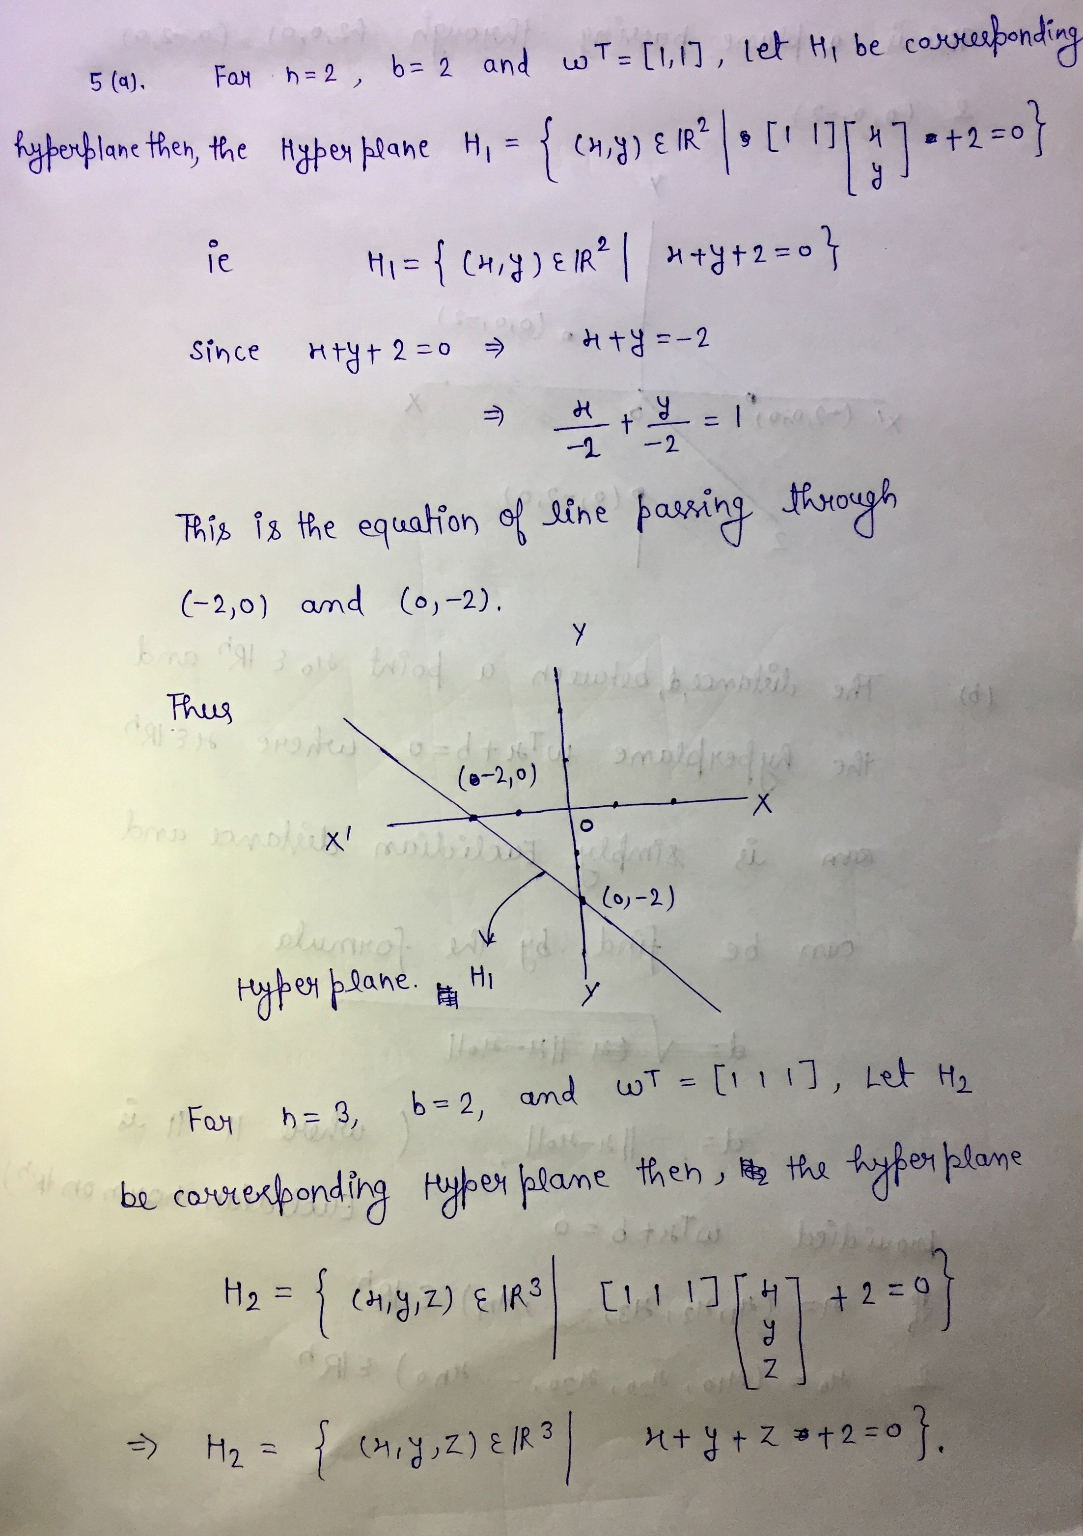 5(a). For n=2, b=2 and wᵀ=[1,1], let H₁ be corresponding
hyperplane then, the Hyperplane H₁ = { (x,y) ε ℝ² | [1 1] [x y] +2=0 }
ie H₁ = { (x,y) ε ℝ² | x+y+2=0 }
Since x+y+2=0 ⇒ x+y=-2
⇒ x/-2 + y/-2 = 1
This is the equation of line passing through
(-2,0) and (0,-2).
Y
Thus
(-2,0)
X
X'
O
(0,-2)
Hyperplane. H₁
Y
For n=3, b=2, and wᵀ = [1 1 1], Let H₂
be corresponding Hyperplane then, the hyperplane
H₂ = { (x,y,z) ε ℝ³ | [1 1 1] [x y z] +2=0 }
⇒ H₂ = { (x,y,z) ε ℝ³ | x+y+z+2=0 }.